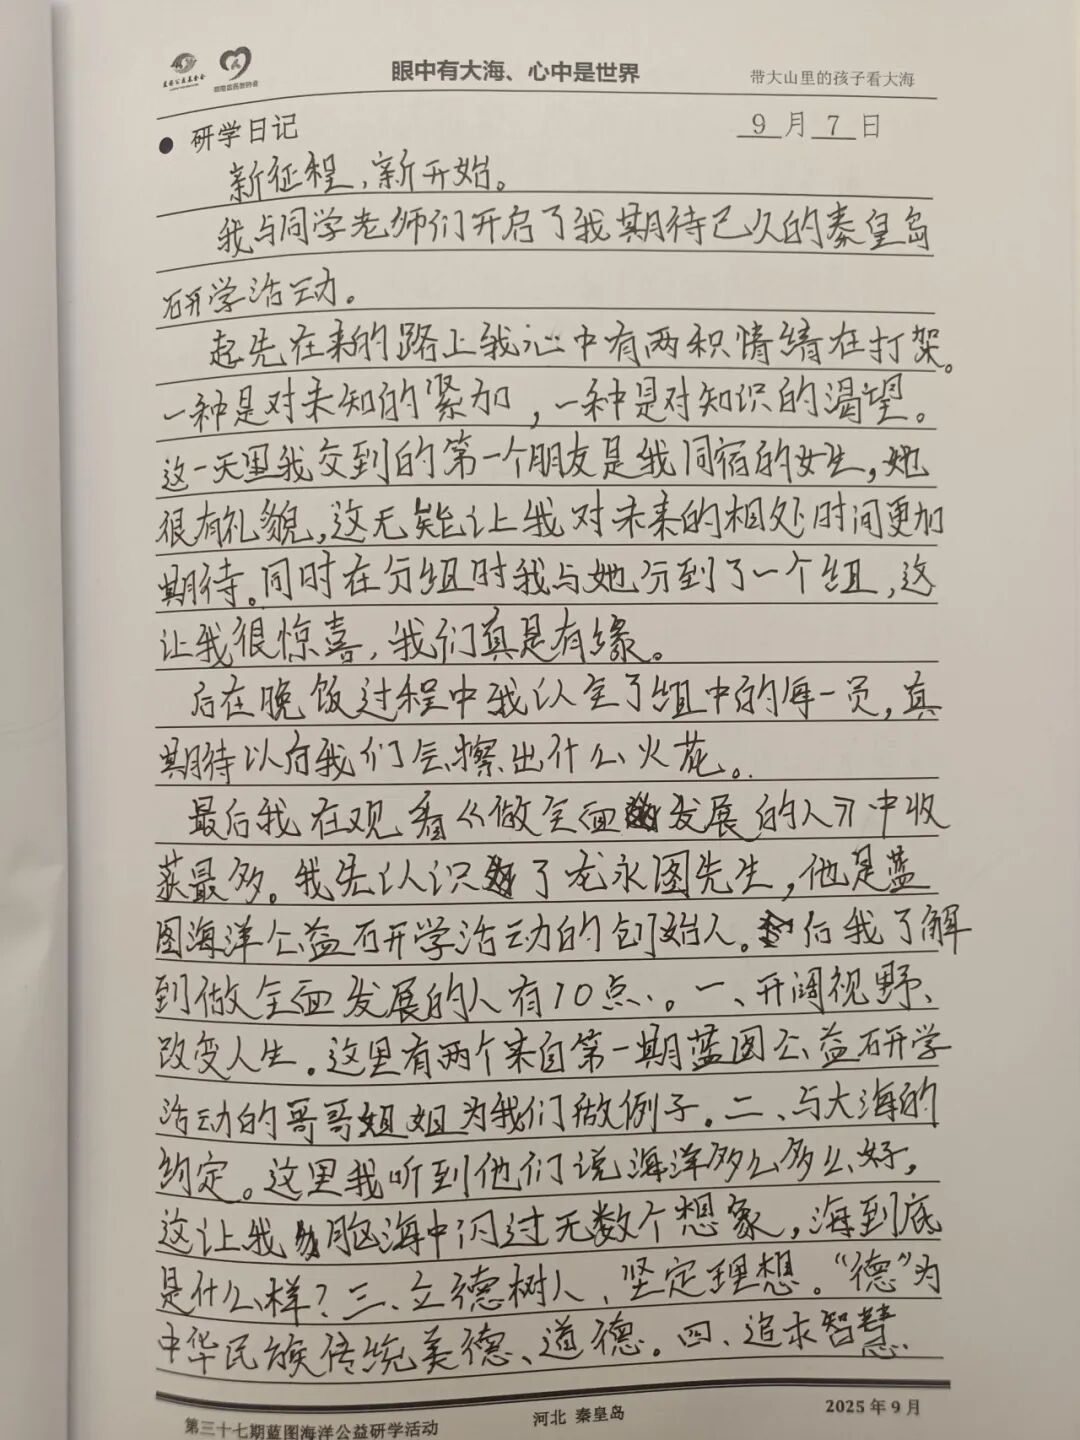 眼中有大海、心中是世界
带大山里的孩子看大海
研学日记
9月7日
新征程,新开始。
我与同学老师们开启了我期待已久的秦皇岛
研学活动。
起先在来的路上我心中有两积情绪在打架。
一种是对未知的紧加,一种是对知识的渴望。
这一天里我交到的第一个朋友是我同宿的女生,她
很有礼貌,这无能让我对未来的相处时间更加
期待。同时在分组时我与她分到了一个组,这
让我很惊喜,我们真是有缘。
后在晚饭过程中我认全了组中的每一员,真
期待以后我们会擦出什么火花。
最后我在观看《做全面发展的人》中收
获最多。我先认识了龙永图先生,他是蓝
图海洋公益研学活动的创始人。后我了解
到做全面发展的人有10点。一、开阔视野、
改变人生。这里有两个来自第一期蓝图公益研学
活动的哥哥姐姐为我们做例子。二、与大海的
约定。这里我听到他们说海洋多么多么好,
这让我脑海中闪过无数个想象,海到底
是什么样?三、立德树人、坚定理想。“德”为
中华民族传统美德、道德。四、追求智慧
第三十七期蓝图海洋公益研学活动
河北 秦皇岛
2025年9月